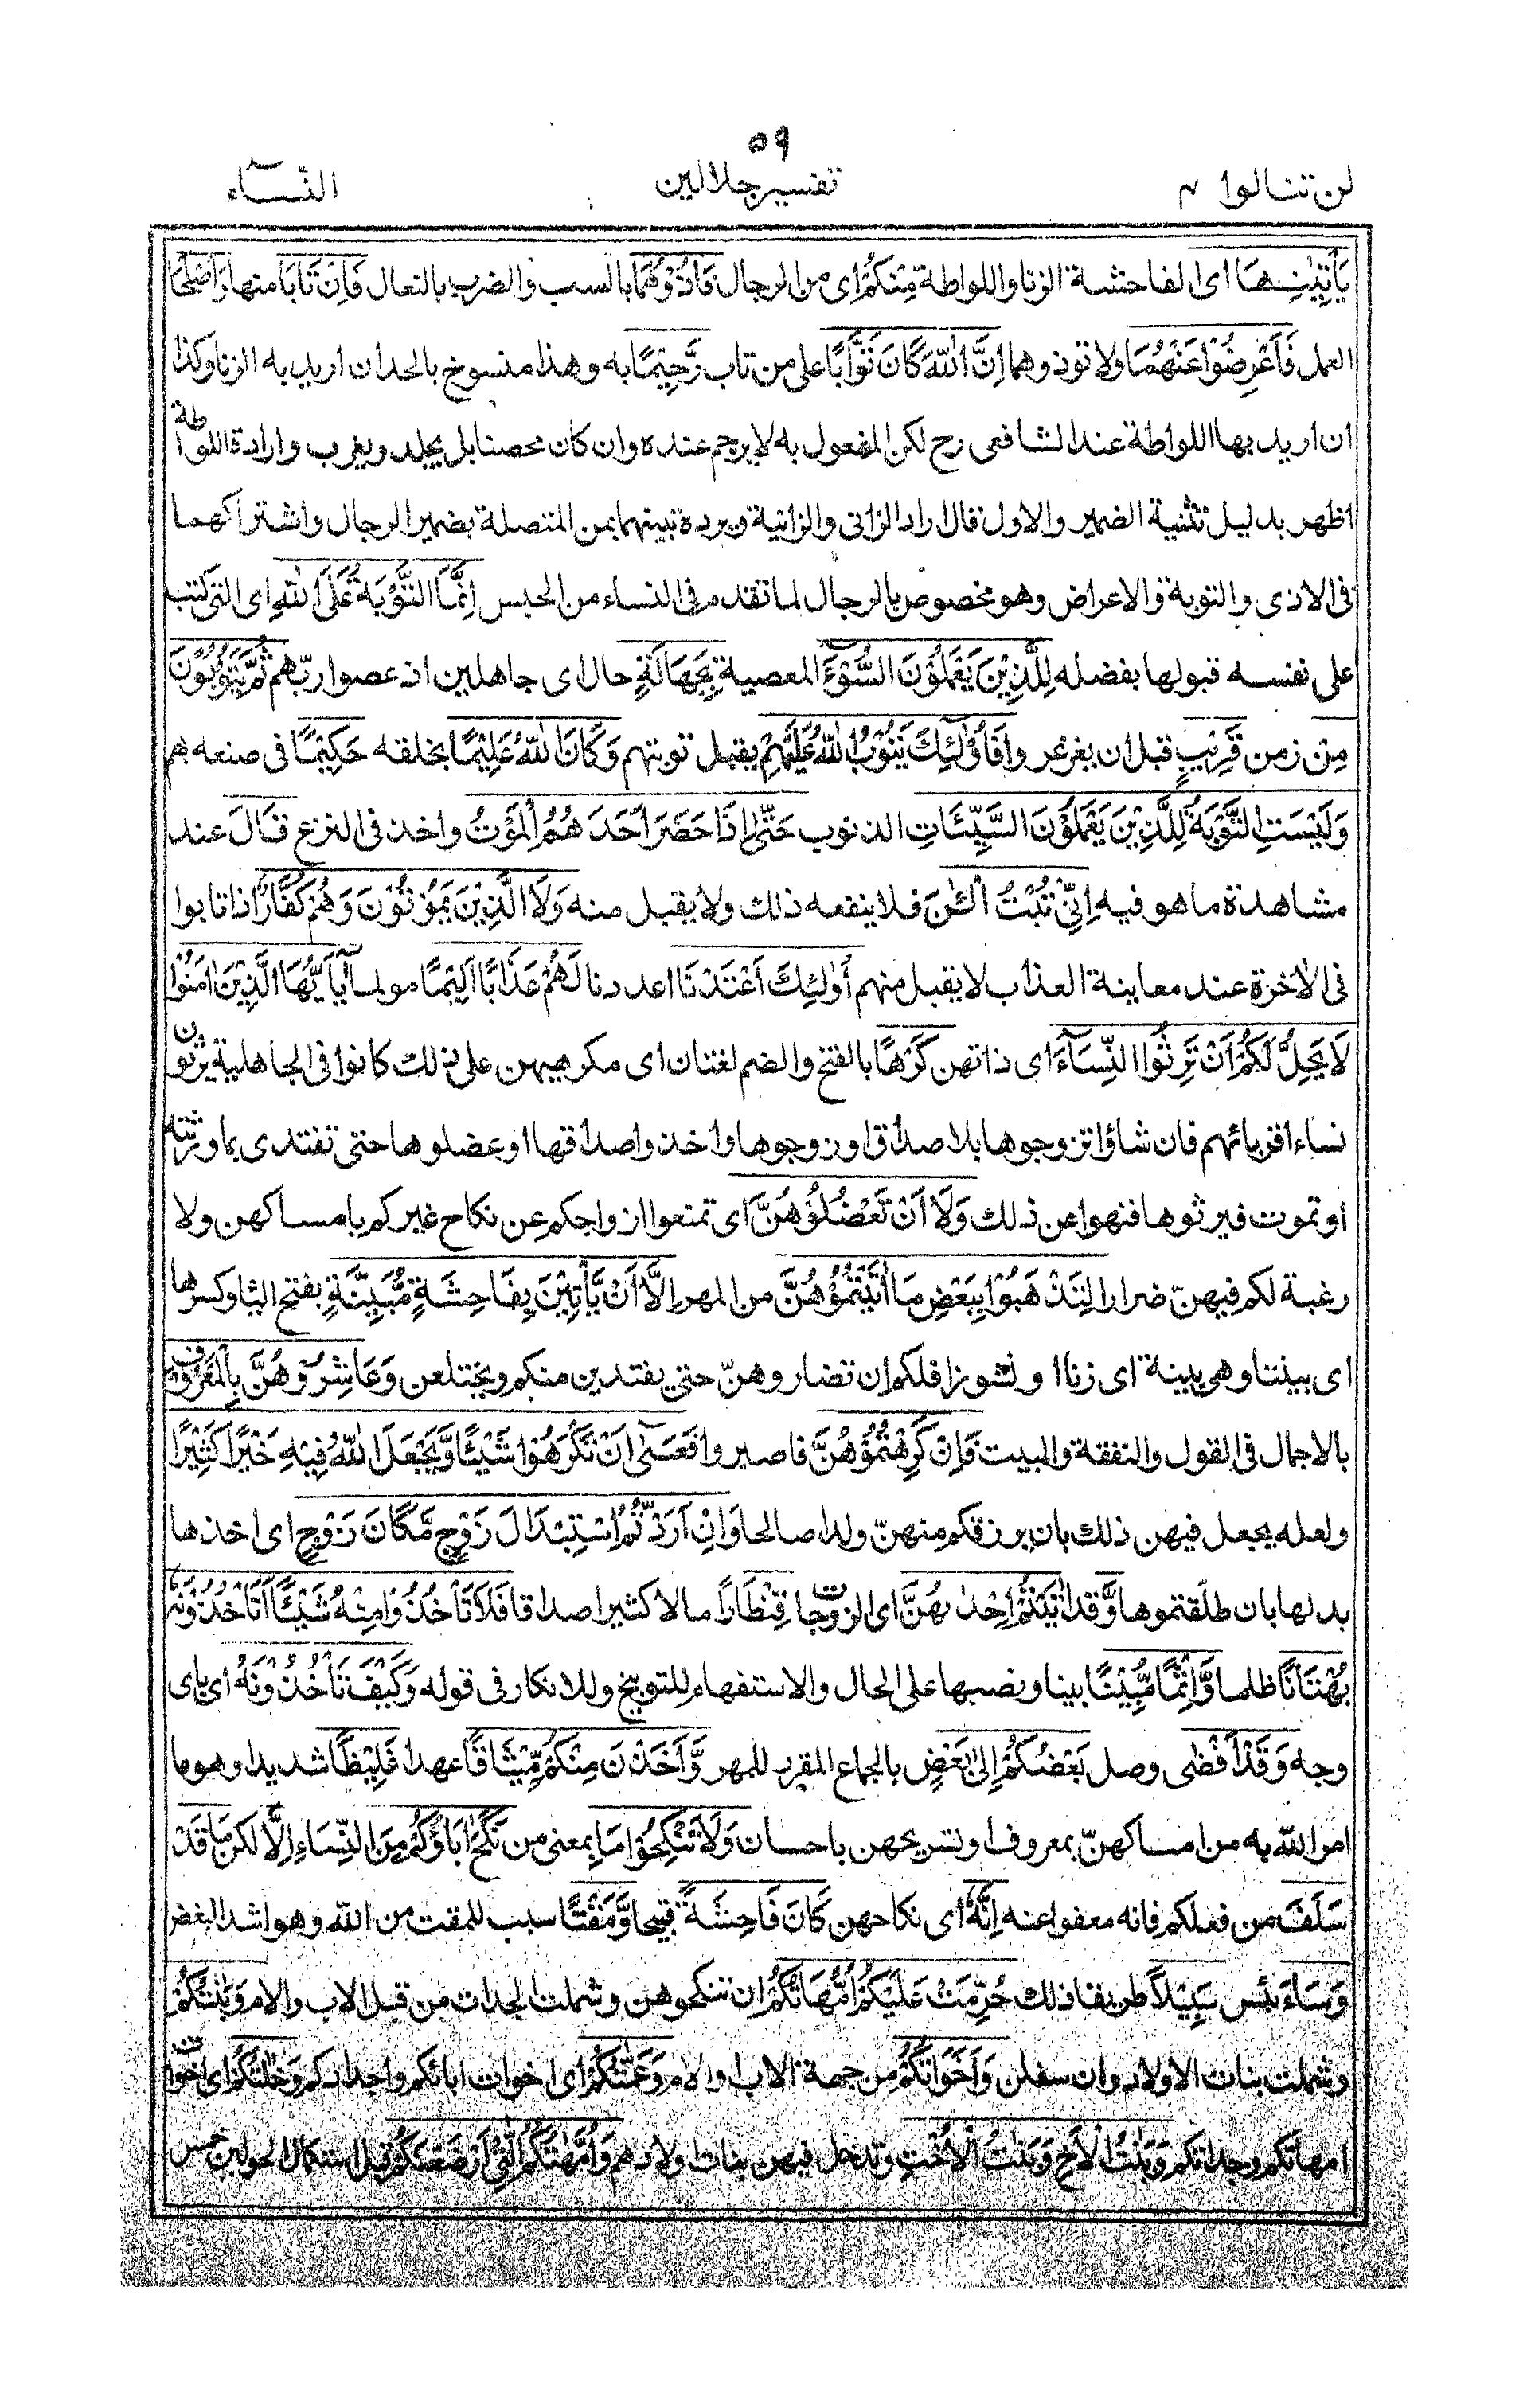 ٥٩
لن تنالوا ٤ تفسير جلالين النساء
يَأْتِيٰنِهَا اى الفاحشة الزنا واللواطة مِنْكُمْ اى من الرجال فَاٰذُوْهُمَا بالسب والضرب بالنعال فَاِنْ تَابَا منها وَاَصْلَحَا
العمل فَاَعْرِضُوْا عَنْهُمَا ولا توذوهما اِنَّ اللّٰهَ كَانَ تَوَّابًا على من تاب رَّحِيْمًا به وهذا منسوخ بالحد ان اريد به الزنا وكذا
ان اريد بها اللواطة عند الشافعى رح لكن المفعول به لا يرجم عنده وان كان محصنا بل يجلد ويغرب وارادة اللواطة
اظهر بدليل تثنية الضمير والاول قال اراد الزانى والزانية ويرده تبيينهما بمن المتصلة بضمير الرجال واشتراكهما
فى الاذى والتوبة والاعراض وهو مخصوص بالرجال لما تقدم فى النساء من الحبس اِنَّمَا التَّوْبَةُ عَلَى اللّٰهِ اى التى كتب
على نفسه قبولها بفضله لِلَّذِيْنَ يَعْمَلُوْنَ السُّوْٓءَ المعصية بِجَهَالَةٍ حال اى جاهلين اذ عصوا ربّهم ثُمَّ يَتُوْبُوْنَ
مِنْ زمن قَرِيْبٍ قبل ان يغرغروا فَاُولٰٓئِكَ يَتُوْبُ اللّٰهُ عَلَيْهِمْ يقبل توبتهم وَكَانَ اللّٰهُ عَلِيْمًا بخلقه حَكِيْمًا فى صنعه هم
وَلَيْسَتِ التَّوْبَةُ لِلَّذِيْنَ يَعْمَلُوْنَ السَّيِّئَاتِ الذنوب حَتّٰى اِذَا حَضَرَ اَحَدَهُمُ الْمَوْتُ واخذ فى النزع قَالَ عند
مشاهدة ما هو فيه اِنِّىْ تُبْتُ الْـٰٔنَ فلا ينفعه ذلك ولا يقبل منه وَلَا الَّذِيْنَ يَمُوْتُوْنَ وَهُمْ كُفَّارٌ اذا تابوا
فى الاخرة عند معاينة العذاب لا يقبل منهم اُولٰئِكَ اَعْتَدْنَا اعددنا لَهُمْ عَذَابًا اَلِيْمًا مولما يٰٓاَيُّهَا الَّذِيْنَ اٰمَنُوْا
لَا يَحِلُّ لَكُمْ اَنْ تَرِثُوا النِّسَآءَ اى ذاتهن كَرْهًا بالفتح والضم لغتان اى مكرهيهن على ذلك كانوا فى الجاهلية يرثون
نساء اقربائهم فان شاؤا تزوجوها بلا صداق او زوجوها واخذوا صداقها او عضلوها حتى تفتدى بما ورثته
او تموت فيرثوها فنهوا عن ذلك وَلَا اَنْ تَعْضُلُوْهُنَّ اى تمنعوا ازواجكم عن نكاح غيركم بامساكهن ولا
رغبة لكم فيهنّ ضرارا لِتَذْهَبُوْا بِبَعْضِ مَا اٰتَيْتُمُوْهُنَّ من المهر اِلَّا اَنْ يَّأْتِيْنَ بِفَاحِشَةٍ مُّبَيِّنَةٍ بفتح اليا وكسرها
اى بينت او هى بينة اى زنا او نشوزا فلكم ان تضاروهنّ حتى يفتدين منكم ويختلعن وَعَاشِرُوْهُنَّ بِالْمَعْرُوْفِ
بالاجمال فى القول والنفقة والمبيت فَاِنْ كَرِهْتُمُوْهُنَّ فاصبروا فَعَسٰٓى اَنْ تَكْرَهُوْا شَيْئًا وَّيَجْعَلَ اللّٰهُ فِيْهِ خَيْرًا كَثِيْرًا
ولعله يجعل فيهن ذلك بان يرزقكم منهنّ ولدا صالحا وَاِنْ اَرَدْتُّمُ اسْتِبْدَالَ زَوْجٍ مَّكَانَ زَوْجٍ اى اخذها
بدلها بان طلّقتموها وَّقد اٰتَيْتُمْ اِحْدٰىهُنَّ اى الزوجات قِنْطَارًا مالا كثيرا صداقا فَلَا تَأْخُذُوْا مِنْهُ شَيْئًا اَتَأْخُذُوْنَهٗ
بُهْتَانًا ظلما وَّاِثْمًا مُّبِيْنًا بينا ونصبها على الحال والاستفهام للتوبيخ وللانكار فى قوله وَكَيْفَ تَأْخُذُوْنَهٗ اى باى
وجه وَقَدْ اَفْضٰى وصل بَعْضُكُمْ اِلٰى بَعْضٍ بالجماع المقرر للمهر وَّاَخَذْنَ مِنْكُمْ مِّيْثَاقًا عهدا غَلِيْظًا شديدا وهو ما
امر اللّٰه به من امساكهنّ بمعروف او تسريحهن باحسان وَلَا تَنْكِحُوْا مَا بمعنى من نَكَحَ اٰبَاؤُكُمْ مِنَ النِّسَاءِ اِلَّا لكن مَا قَدْ
سَلَفَ من فعلكم فانه معفو عنه اِنَّهٗ اى نكاحهن كَانَ فَاحِشَةً قبيحا وَّمَقْتًا سبب للمقت من اللّٰه وهو اشد البغض
وَسَاءَ بئس سَبِيْلًا طريقا ذلك حُرِّمَتْ عَلَيْكُمْ اُمَّهَاتُكُمْ ان تنكحوهن وشملت الجدات من قبل الاب والام وَبَنٰتُكُمْ
وشملت بنات الاولاد وان سفلن وَاَخَوَاتُكُمْ من جهة الاب او الام وَعَمّٰتُكُمْ اى اخوات ابائكم واجدادكم وَخٰلٰتُكُمْ اى اخوات
امهاتكم وجداتكم وَبَنٰتُ الْاَخِ وَبَنٰتُ الْاُخْتِ وتدخل فيهن بنات اولادهم وَاُمَّهٰتُكُمُ الّٰتِىْ اَرْضَعْنَكُمْ قبل استكمال الحولين خمس